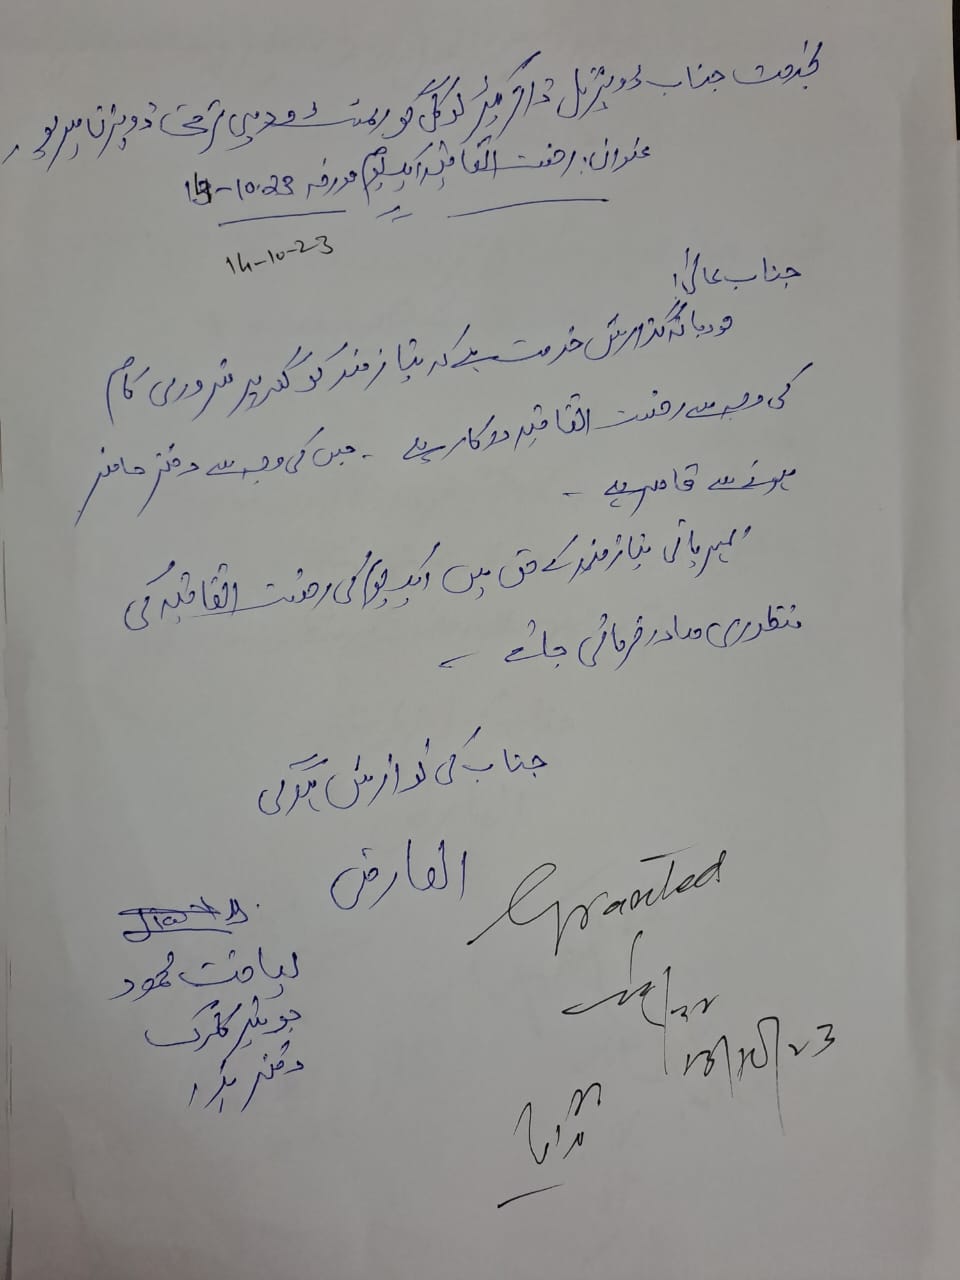 بخدمت جناب ڈویژنل ڈائریکٹر لوکل گورنمنٹ و دیہی ترقی ڈویژن میرپور
عنوان: رخصت اتفاقیہ ایک یوم مورخہ 14-10-23
14-10-23
جناب عالی!
مودبانہ گذارش خدمت ہے کہ نیاز مند کو گھر پر ضروری کام
کی وجہ سے رخصت اتفاقیہ درکار ہے ۔ جس کی وجہ سے دفتر حاضر
ہونے سے قاصر ہے ۔
مہربانی نیاز مند کے حق میں ایک یوم کی رخصت اتفاقیہ کی
منظوری صادر فرمائی جائے ۔
جناب کی نوازش ہوگی
العارض
Granted
لیاقت محمود
جونیئر کلرک
دفتر ہذا
13/10/23